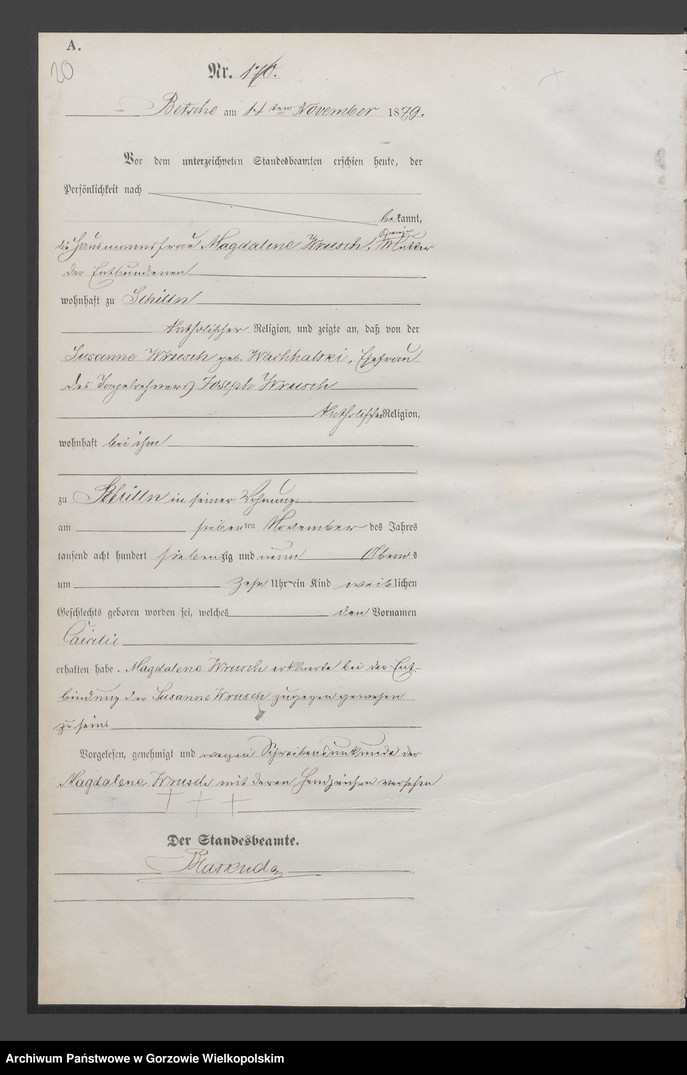 A.
20
Nr. 170.
Betsche am 14ten November 1879.
Vor dem unterzeichneten Standesbeamten erschien heute, der
Persönlichkeit nach
bekannt,
die Hausmannsfrau Magdalene Wrusch, Mutter
der Entbundenen
wohnhaft zu Schilln
katholischer Religion, und zeigte an, daß von der
Susanne Wrusch geb. Wachhalski, Ehefrau
des Tagelöhners Joseph Wrusch
katholischer Religion,
wohnhaft bei ihm
zu Schilln in seiner Wohnung
am siebenten November des Jahres
tausend acht hundert siebenzig und neun Abends
um zehn Uhr ein Kind weiblichen
Geschlechts geboren worden sei, welches den Vornamen
Cäcilie
erhalten habe. Magdalene Wrusch erklärte bei der Ent-
bindung der Susanne Wrusch zugegen gewesen
zu sein.
Vorgelesen, genehmigt und wegen Schreibensunkunde der
Magdalene Wrusch mit deren Handzeichen versehen
+ + +
Der Standesbeamte.
Archiwum Państwowe w Gorzowie Wielkopolskim